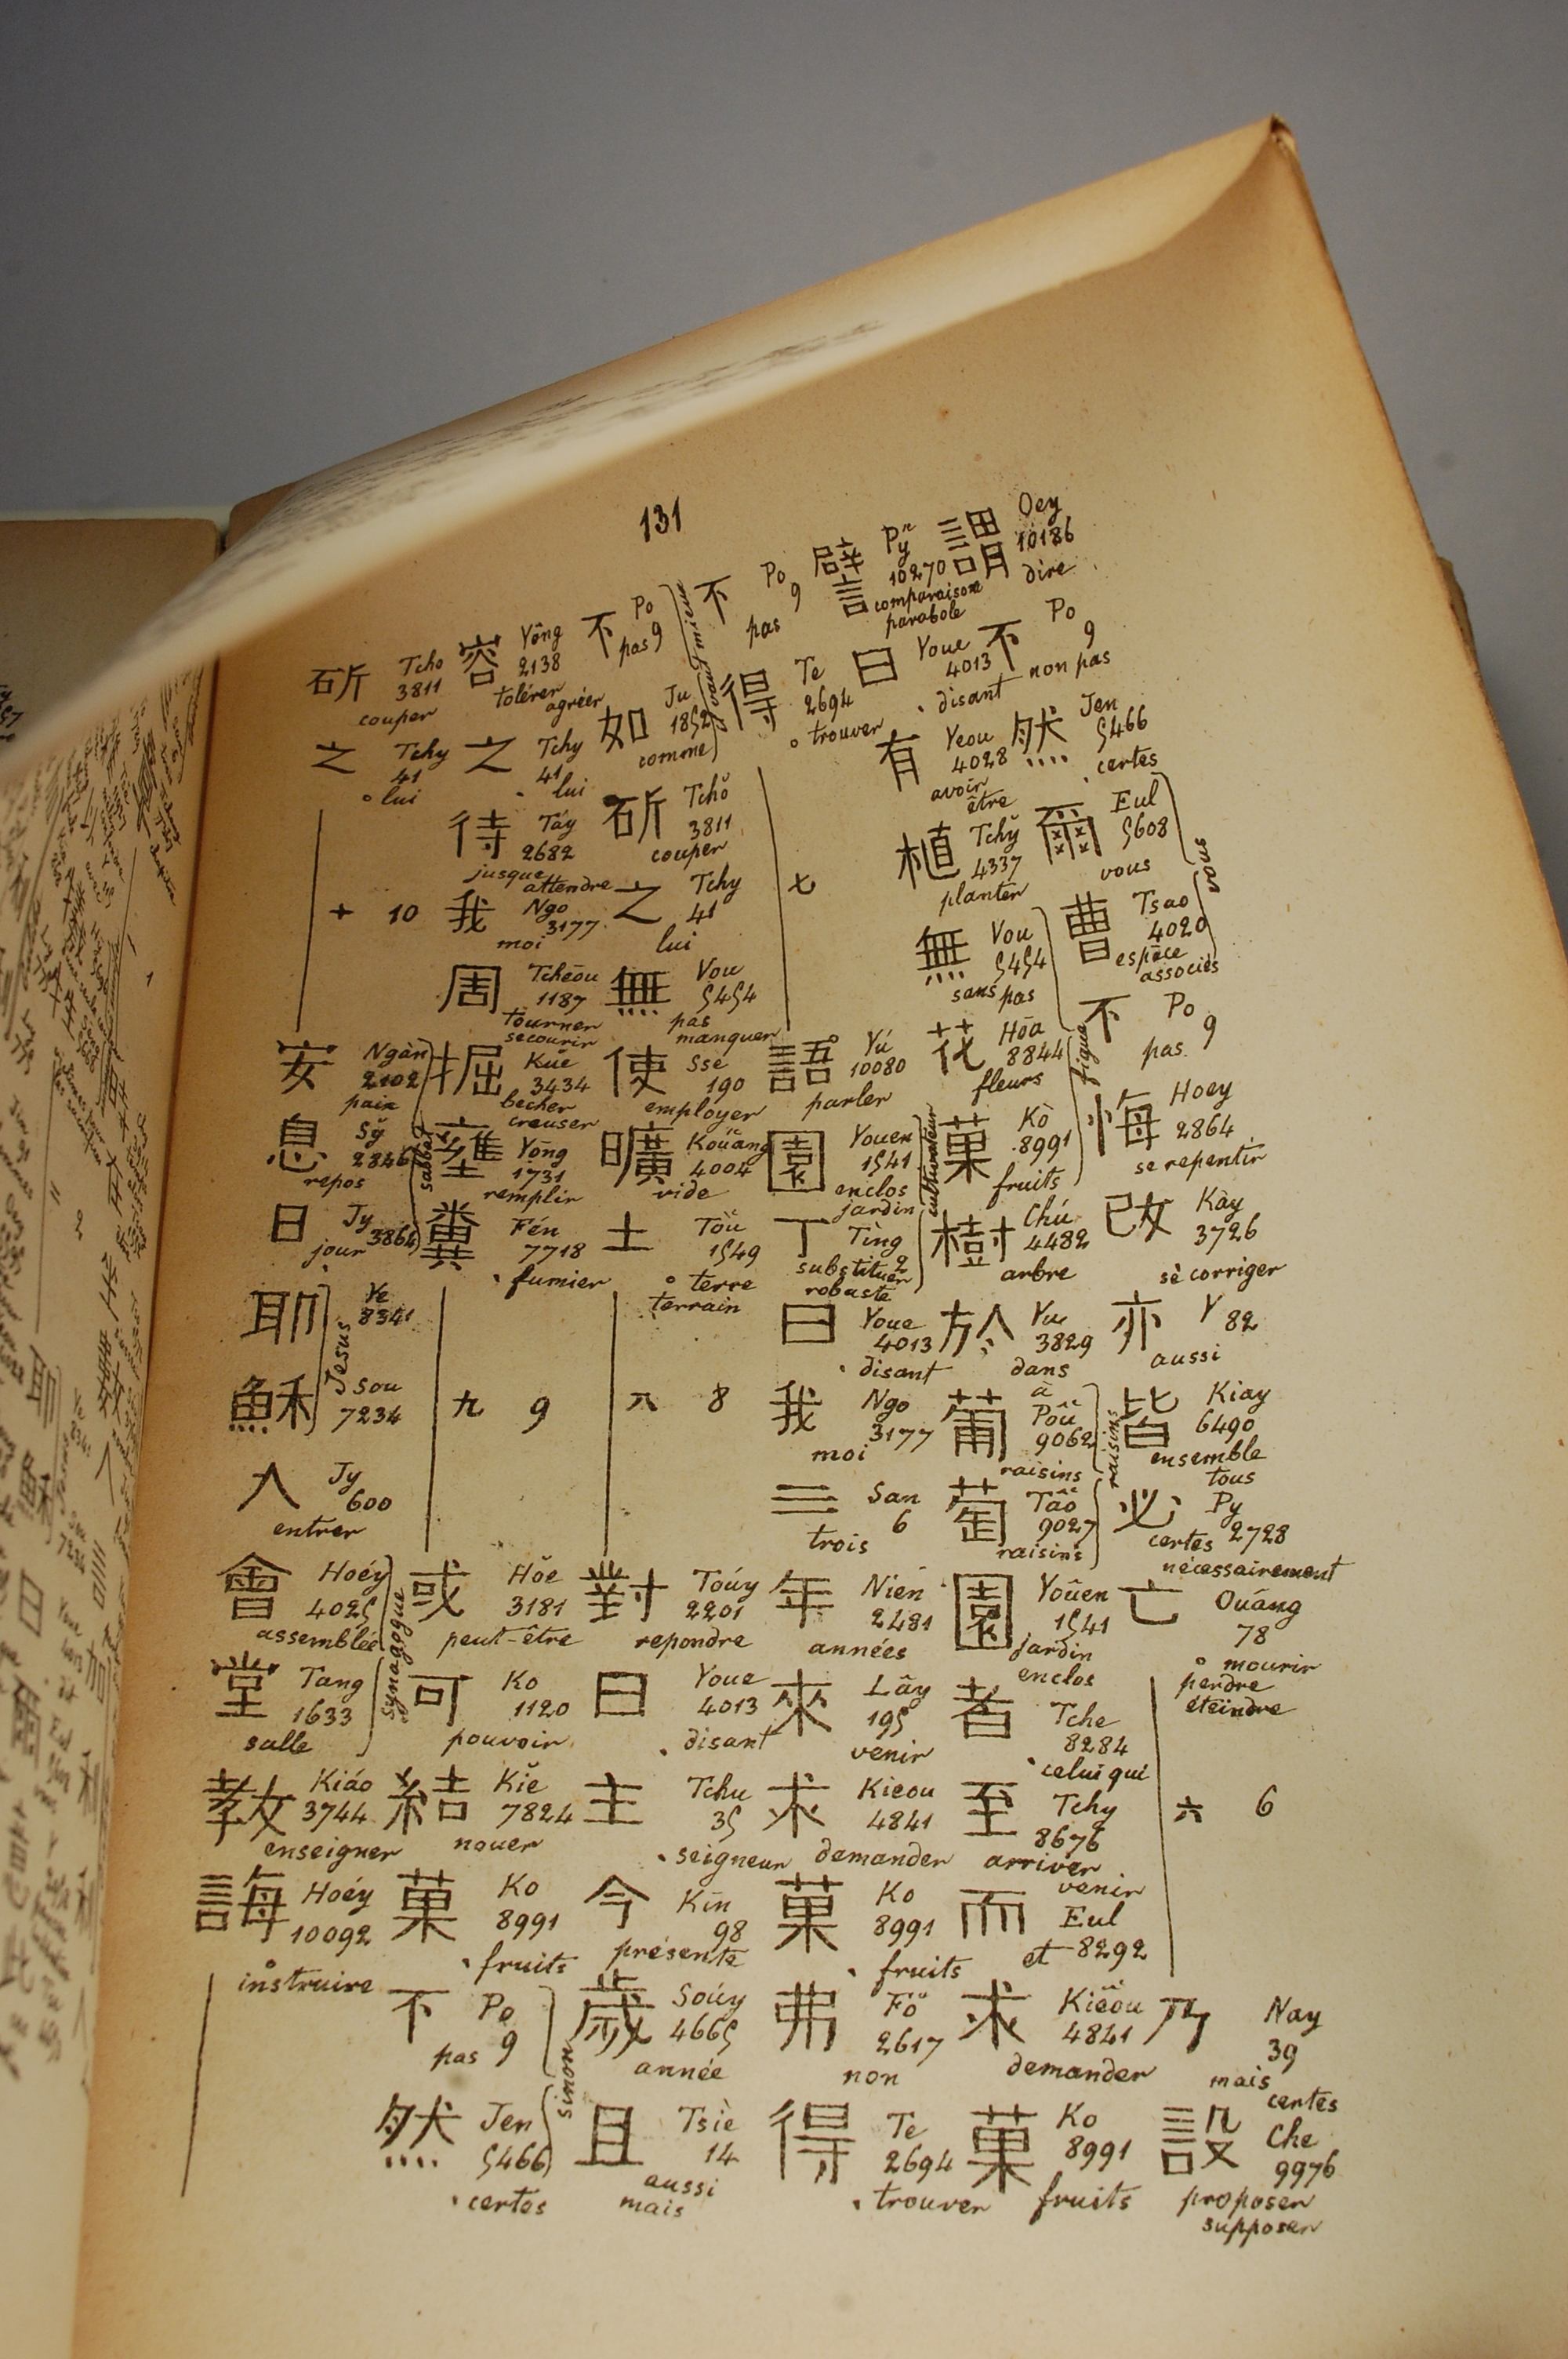 131
謂 Oey 10186 dire
不 Po 9 non pas
然 Jen 5466 certes
爾 Eul 5608 vous
曹 Tsao 4020 espèce associés
不 Po 9 pas
悔 Hoey 2864 se repentir
改 Kày 3726 sè corriger
亦 Y 82 aussi
皆 Kiay 6490 ensemble tous
必 Py 2728 certes nécessairement
亡 Ouáng 78 mourir perdre éteindre
六 6
乃 Nay 39 mais certes
設 Che 9976 proposer supposer
譬 Py 10270 comparaison parabole
曰 Youe 4013 disant
有 Yeou 4028 avoir être
植 Tchy 4337 planter
無 Vou 5454 sans pas
花 Hōa 8844 fleurs
菓 Kò 8991 fruits
figue
樹 Chú 4482 arbre
於 Yu 3829 dans à
葡 Pôû 9062 raisins
萄 Tâô 9027 raisins
raisins
園 Yoûen 1541 jardin enclos
者 Tche 8284 celui qui
至 Tchy 8676 arriver venir
而 Eul 8292 et
求 Kiêôu 4841 demander
菓 Ko 8991 fruits
不 Po 9 pas
得 Te 2694 trouver
七
語 Yú 10080 parler
園 Youen 1541 enclos jardin
丁 Tìng 2 substituer robuste
cultivateur
曰 Youe 4013 disant
我 Ngo 3177 moi
三 San 6 trois
年 Nien 2481 années
來 Lây 195 venir
求 Kieou 4841 demander
菓 Ko 8991 fruits
弗 Fŏ 2617 non
得 Te 2694 trouver
不 Po 9 pas
如 Ju 1852 comme
斫 Tchŏ 3811 couper
之 Tchy 41 lui
無 Vou 5454 pas manquer
使 Sse 190 employer
曠 Kouàng 4004 vide
土 Toŭ 1549 terre terrain
八 8
對 Toúy 2201 repondre
曰 Youe 4013 disant
主 Tchu 35 seigneur
今 Kīn 98 présente
歲 Soúy 4665 année
且 Tsiè 14 aussi mais
容 Yông 2138 tolérer agréer
之 Tchy 41 lui
待 Táy 2682 jusque attendre
我 Ngo 3177 moi
周 Tcheōu 1187 tourner secourir
掘 Kŭe 3434 becher creuser
壅 Yōng 1731 remplir
糞 Fén 7718 fumier
九 9
或 Hŏe 3181 peut-être
可 Ko 1120 pouvoir
結 Kiĕ 7824 nouer
菓 Ko 8991 fruits
不 Po 9 pas
然 Jen 5466 certes
sinon
斫 Tcho 3811 couper
之 Tchy 41 lui
十 10
安 Ngàn 2102 paix
息 Sy 2846 repos
日 Jy 3864 jour
sabbat
耶 Ye 8341
穌 Sou 7234
Jesus
入 Jy 600 entrer
會 Hoéy 4025 assemblée
堂 Tang 1633 salle
synagogue
教 Kiáo 3744 enseigner
誨 Hoéy 10092 instruire